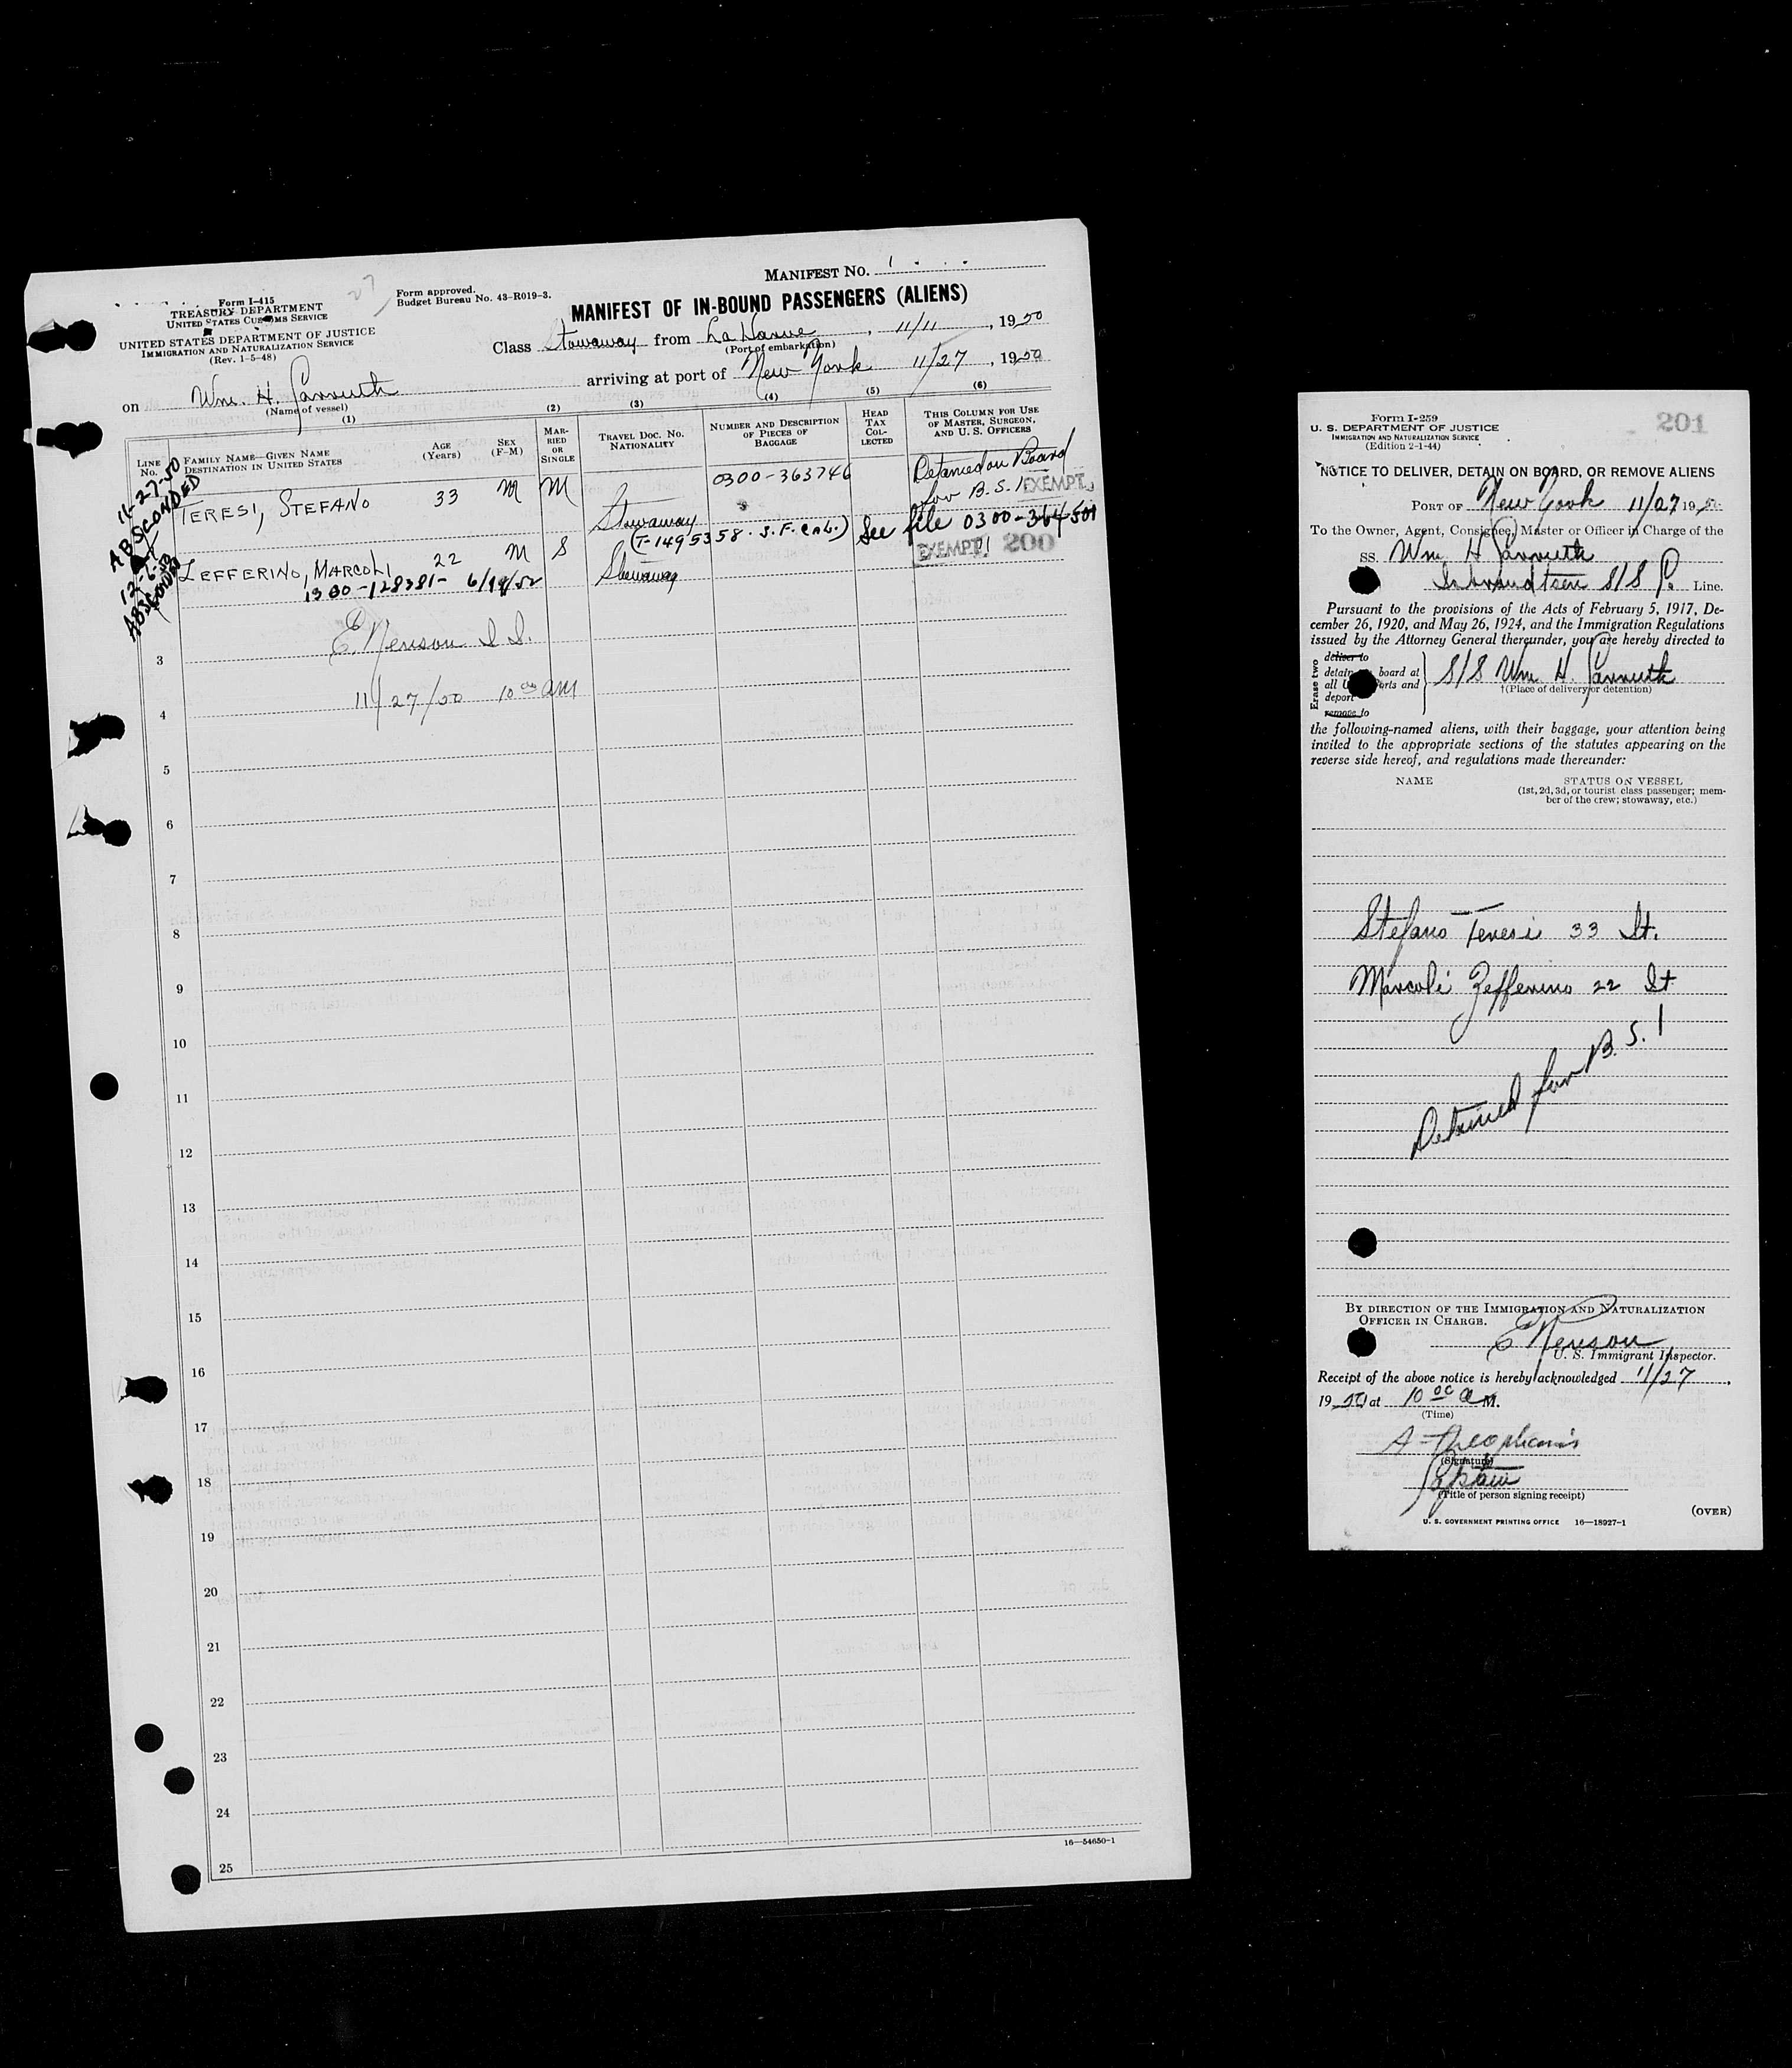 MANIFEST NO. 1
Form I-415
TREASURY DEPARTMENT
UNITED STATES CUSTOMS SERVICE
UNITED STATES DEPARTMENT OF JUSTICE
IMMIGRATION AND NATURALIZATION SERVICE
(Rev. 1-5-48)
27
Form approved.
Budget Bureau No. 43-R019-3.
MANIFEST OF IN-BOUND PASSENGERS (ALIENS)
Class Stowaway from La Havre, 11/11, 1950
(Port of embarkation)
on Wm. H. Carruth arriving at port of New York 11/27, 1950
(Name of vessel)
(1) (2) (3) (4) (5) (6)
LINE No.
FAMILY NAME—GIVEN NAME
DESTINATION IN UNITED STATES
AGE (Years)
SEX (F-M)
MARRIED OR SINGLE
TRAVEL DOC. NO.
NATIONALITY
NUMBER AND DESCRIPTION OF PIECES OF BAGGAGE
HEAD TAX COLLECTED
THIS COLUMN FOR USE OF MASTER, SURGEON, AND U. S. OFFICERS
11-27-50
ABSCONDED
TERESI, STEFANO 33 M M Stowaway 0300-363746 Detained on Board
for B.S.I EXEMPT
(T-1495358. S.F. Cal.) See file 0300-364501
12-6-50
ABSCONDED
ZEFFERINO, MARCOLI 22 M S Stowaway EXEMPT 200
1300-128381- 6/19/52
E. Nenson I. I.
3
11/27/50 10 00 AM
4
5
6
7
8
9
10
11
12
13
14
15
16
17
18
19
20
21
22
23
24
25
16—54650-1
Form I-259
U. S. DEPARTMENT OF JUSTICE
IMMIGRATION AND NATURALIZATION SERVICE
(Edition 2-1-44)
201
NOTICE TO DELIVER, DETAIN ON BOARD, OR REMOVE ALIENS
PORT OF New York 11/27 1950
To the Owner, Agent, Consignee, Master or Officer in Charge of the
SS. Wm H Carruth
Isbrandtsen S/S Co. Line.
Pursuant to the provisions of the Acts of February 5, 1917, De-
cember 26, 1920, and May 26, 1924, and the Immigration Regulations
issued by the Attorney General thereunder, you are hereby directed to
Erase two
deliver to
detain on board at
all U. S. ports and
deport
remove to
S/S Wm. H. Carruth
†(Place of delivery or detention)
the following-named aliens, with their baggage, your attention being
invited to the appropriate sections of the statutes appearing on the
reverse side hereof, and regulations made thereunder:
NAME STATUS ON VESSEL
(1st, 2d, 3d, or tourist class passenger; mem-
ber of the crew; stowaway, etc.)
Stefano Teresi 33 St.
Marcoli Zefferino 22 St
Detained for B. S. I
BY DIRECTION OF THE IMMIGRATION AND NATURALIZATION
OFFICER IN CHARGE.
E Nenson
U. S. Immigrant Inspector.
Receipt of the above notice is hereby acknowledged 11/27,
1950 at 10 00 A M.
(Time)
(Signature)
Captain
(Title of person signing receipt)
(OVER)
U. S. GOVERNMENT PRINTING OFFICE 16—18927-1